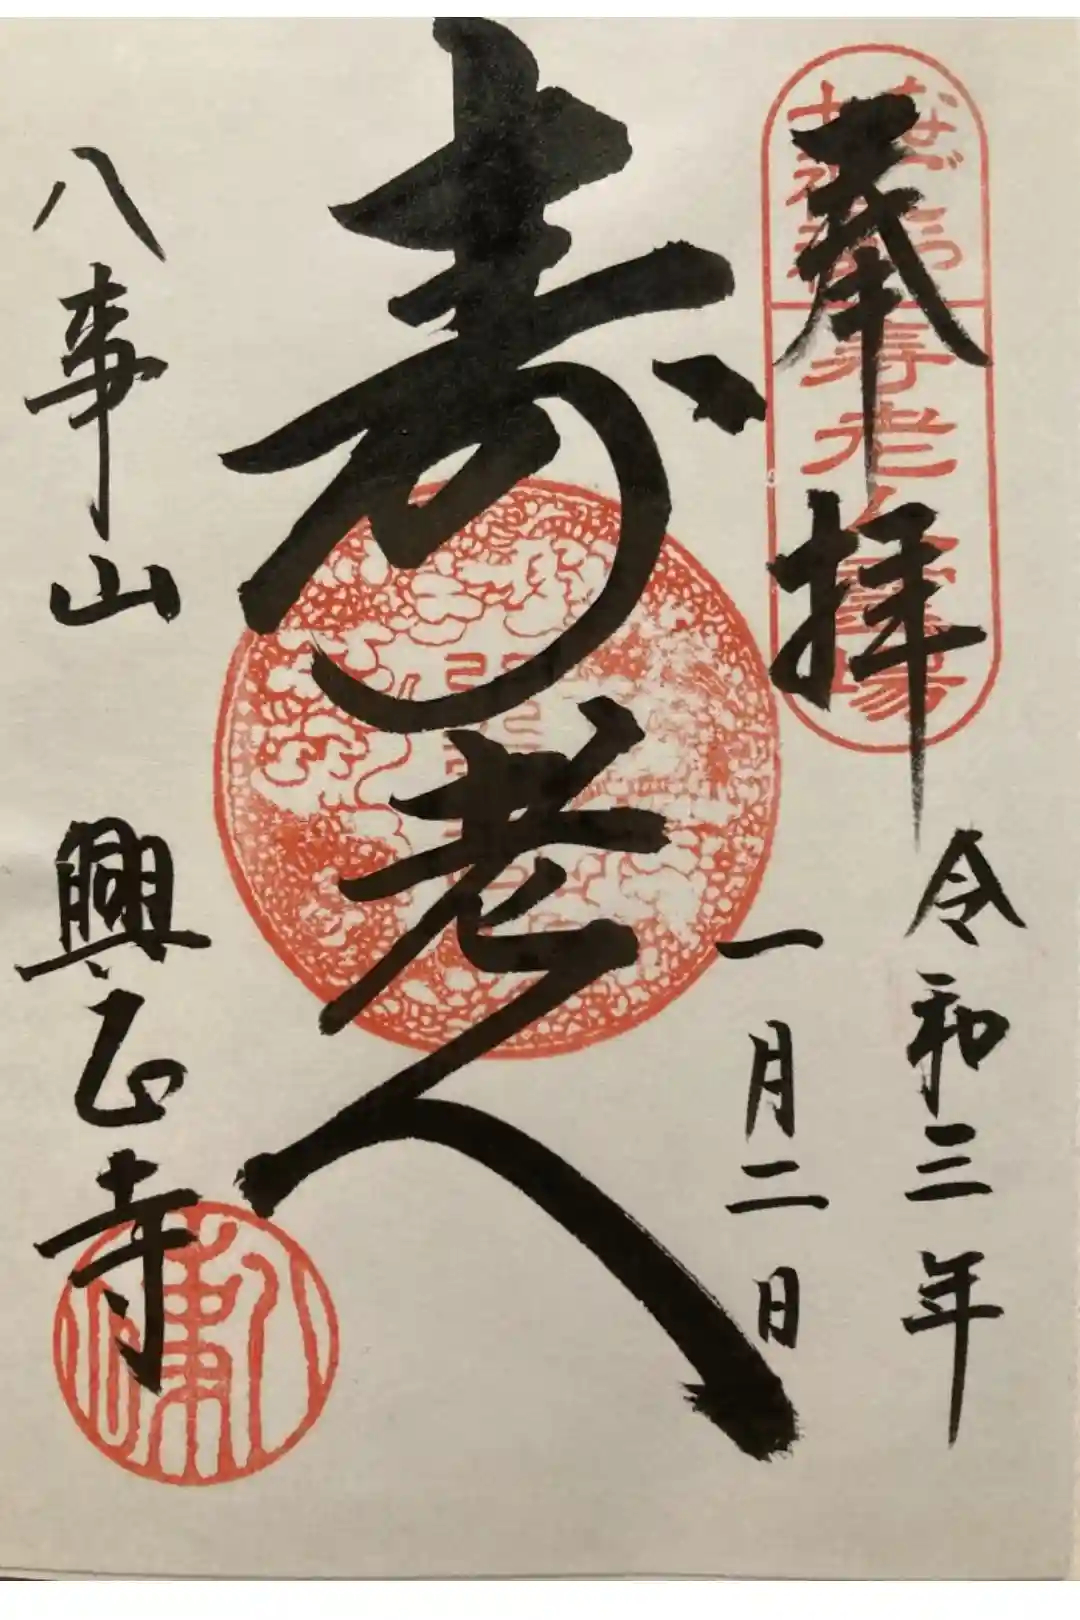 奉拝
なごや
七福神
寿老人霊場
令和三年
一月二日
寿老人
八事山
興正寺
八事山